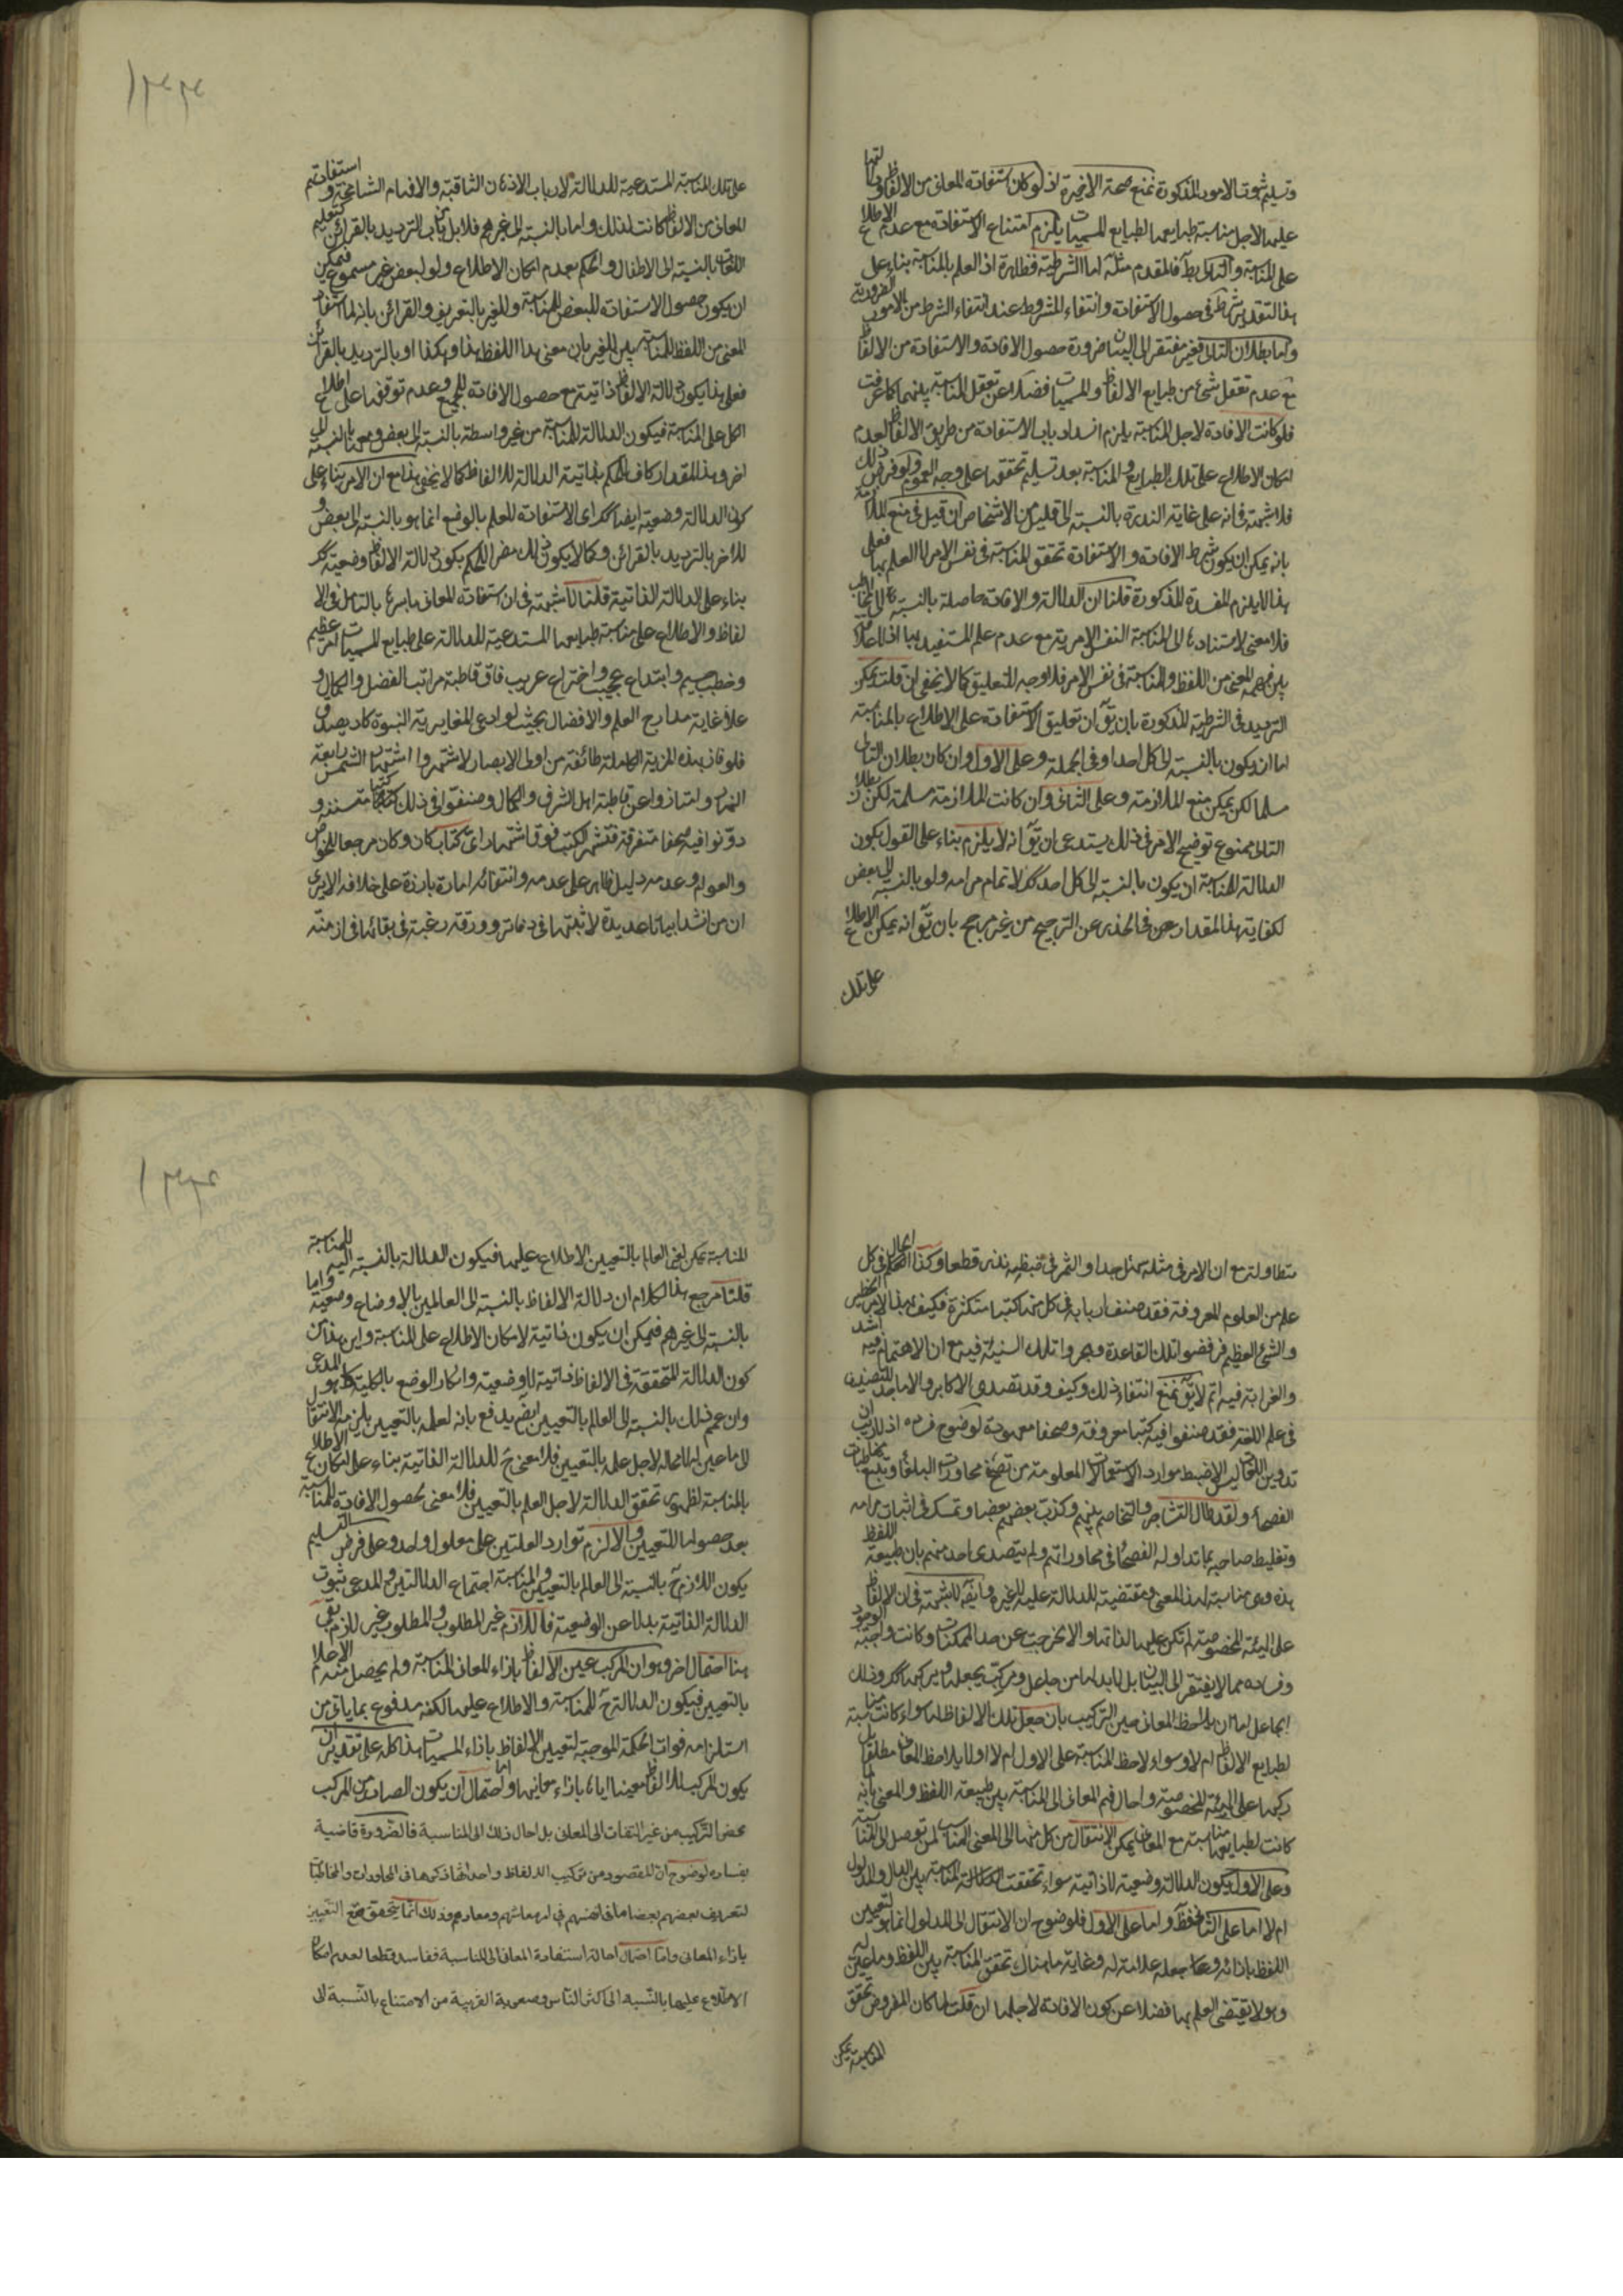 وتسليم ثبوت الامور المذكورة نمنع صحة الاخيرة اذ لو كان استفادة المعانى من الالفاظ ودلالتها
عليها لاجل مناسبة طبايعها لطبايع المسميات يلزم امتناع الاستفادة مع عدم الاطلاع
على المناسبة والتالى بط فالمقدم مثله اما الشرطية فظاهرة اذ العلم بالمناسبة بناء على
هذا التقدير شرط فى حصول الاستفادة وانتفاء المشروط عند انتفاء الشرط من الامور الضرورية
واما بطلان التالى فغير مفتقر الى البيان ضرورة حصول الافادة والاستفادة من الالفاظ
مع عدم تعقل شئ من طبايع الالفاظ والمسميات فضلا عن تعقل المناسبة بينهما كما عرفت
فلو كانت الافادة لاجل المناسبة يلزم انسداد باب الاستفادة من طريق الالفاظ لعدم
امكان الاطلاع على تلك الطبايع والمناسبة بعد تسليم تحققها على وجه العموم ولو فرض ذلك
فلا شبهة فى انه على غاية الندرة بالنسبة الى قليل من الاشخاص ان قيل فى منع الملازمة
بانه يمكن ان يكون شرط الافادة والاستفادة تحقق المناسبة فى نفس الامر لا العلم بها فعلى
هذا لا يلزم المفسدة المذكورة قلنا ان الدلالة والافادة حاصلة بالنسبة الى المخاطب
فلا معنى لاستنادها الى المناسبة النفس الامرية مع عدم علم المستفيد بها اذ لا علاقة
بين فهمه المعنى من اللفظ والمناسبة فى نفس الامر فلا وجه للتعليق كما لا يخفى ان قلت يمكن
الترديد فى الشرطية المذكورة بان يق ان تعليق الاستفادة على الاطلاع بالمناسبة
اما ان يكون بالنسبة الى كل احد او فى الجملة وعلى الاول وان كان بطلان التالى
مسلما لكن يمكن منع الملازمة وعلى الثانى وان كانت الملازمة مسلمة لكن بطلان
التالى ممنوع توضيح الامر فى ذلك يستدعى ان يق انه لا يلزم بناء على القول بكون
الدلالة للمناسبة ان يكون بالنسبة الى كل احد كك لا تمام مرامه ولو بالنسبة الى بعض
لكفاية هذا المقدار عن فى المحذر عن الترجيح من غير مرجح بان يق انه يمكن الاطلاع
على تلك
على تلك المناسبة المستدعية للدلالة لارباب الاذهان الثاقبة والافهام الشامخة واستفادتهم
المعانى من الالفاظ كانت لذلك واما بالنسبة الى غيرهم فلا بل من باب الترديد بالقرائن كتعليم
اللغات بالنسبة الى الاطفال والحكم بعدم امكان الاطلاع ولو لبعض غير مسموع فيمكن
ان يكون حصول الاستفادة للبعض للمناسبة وللغير بالتعريف والقرائن بانه لما استفاد
المعنى من اللفظ للمناسبة بين للغير بان معنى هذا اللفظ هذا وهكذا او بالترديد بالقرائن
فعلى هذا يكون دلالة الالفاظ ذاتية مع حصول الافادة للجميع وعدم توقفها على اطلاع
الكل على المناسبة فيكون الدلالة للمناسبة من غير واسطة بالنسبة الى بعض ومعها بالنسبة الى
اخر وهذا المقدار كاف للحكم بذاتية الدلالة للالفاظ كما لا يخفى هذا مع ان الامر بناء على
كون الدلالة وضعية ايضا كك اى الاستفادة للعلم بالوضع انما هو بالنسبة الى بعض و
للاخر بالترديد بالقرائن وكما لا يكون ذلك مضر للحكم بكون دلالة الالفاظ وضعية كك
بناء على الدلالة الذاتية قلنا لا شبهة فى ان استفادة المعانى باسرها بالتامل فى الا
لفاظ والاطلاع على مناسبة طبايعها المستدعية للدلالة على طبايع المسميات امر عظيم
وخطب جسيم وابتداع عجيب واختراع غريب فاق قاطبة مراتب الفضل والكمال و
علا غاية مدارج العلم والافضال بحيث لو ادعى المغايرية النبوة كاد يصدق
فلو فاز بهذه المزية الكاملة طائفة من اولى الابصار لاشتهروا اشتهار الشمس رابعة
النهار وامتازوا عن قاطبة اهل الشرف والكمال وصنفوا فى ذلك كتبا متسننة و
دونوا فيه صحفا متفرقة فتشتهر الكتب فوق اشتهار اى كتاب كان وكان مرجعا للخواص
والعوام وعدمه دليل ظاهر على عدمه وانتفائه امارة بارزة على خلافه الا يرى
ان من انشد ابياتا عديدة لاثبتها فى دفاتر وورقة رغبة فى بقائها فى ازمنة
متطاولة مع ان الامر فى مثله سهل جدا والثمر فى ضبطه نذر قطعا وكذا الحال فى كل
علم من العلوم المعروفة فقد صنف اربابه فى كل منها كتبا متكثرة فكيف بهذا الامر الخطير
والشئ العظيم فرفضوا تلك القاعدة وهجروا تلك السنية فيه مع ان الاهتمام فيه اشد
والغرابة فيه اتم لا يق نمنع انتفاء ذلك وكيف وقد تصدى الاكابر والاماجد للتصنيف
فى علم اللغة فقد صنفوا فيه كتبا معروفة وصحفا معهودة لوضوح فساده اذ لا ريب ان
تدوين اللغات ليس الا ضبط موارد الاستعمالات المعلومة من تصفح محاورات البلغاء وتتبع مخاطبات
الفصحاء ولقد طال التشاجر والتخاصم بينهم وكذب بعضهم بعضا وتمسك فى اثبات مرامه
وتغليط صاحبه بما تداوله الفصحاء فى محاوراتهم ولم يتصدى احد منهم بان طبيعة اللفظ
هذه وهى مناسبة لهذا المعنى ومقتضية للدلالة عليه لا غيره وايضا لا شبهة فى ان الالفاظ
على الهيئة المخصوصة لم تكن عليها لذاتها والا لخرجت عن حد الممكنات وكانت واجبة الوجود
وفساده مما لا يفتقر الى البيان بل لا بد لها من جاعل ومركب يجعلها ويركبها كك وذلك
الجاعل اما ان يلاحظ المعانى حين التركيب بان جعل تلك الالفاظ لها سواء كانت مناسبة
لطبايع الالفاظ ام لا وسواء لاحظ المناسبة على الاول ام لا او لا يلاحظ المعانى مطلقا بل
ركبها على الهيئة المخصوصة واحال فهم المعانى الى المناسبة بين طبيعة اللفظ والمعنى بانه لما
كانت لطبايعها مناسبة مع المعانى يمكن الانتقال من كل منها الى المعنى المناسب لمن توصل الى المناسبة
وعلى الاول يكون الدلالة وضعية لا ذاتية سواء تحققت المناسبة بين الدال والمدلول
ام لا اما على الثانى فظ واما على الاول فلوضوح ان الانتقال الى المدلول انما هو لتعيين
اللفظ بازائه وجعله علامة له وغاية ما هناك تحقق المناسبة بين اللفظ وما عين له
وهو لا يقتضى العلم بها فضلا عن كون الافادة لاجلها ان قلت لما كان المفروض تحقق
المناسبة يمكن
المناسبة يمكن لغير العالم بالتعيين الاطلاع عليها فيكون الدلالة بالنسبة اليه للمناسبة
قلنا مرجع هذا الكلام ان دلالة الالفاظ بالنسبة الى العالمين بالاوضاع وضعية واما
بالنسبة الى غيرهم فيمكن ان يكون ذاتية لامكان الاطلاع على المناسبة واين هذا من
كون الدلالة المتحققة فى الالفاظ ذاتية لا وضعية وانكار الوضع بالكلية كما هو المدعى
وان عمم ذلك بالنسبة الى العالم بالتعيين ايضا يدفع بانه لعلمه بالتعيين يلزمه الانتقال
لا ما عين له لا محالة لاجل علمه بالتعيين فلا معنى ح للدلالة الذاتية بناء على امكان الاطلاع
بالمناسبة لظهور تحقق الدلالة لاجل العلم بالتعيين فلا معنى لحصول الافادة للمناسبة
بعد حصولها للتعيين والا لزم توارد العلتين على معلول واحد وعلى فرض التسليم
يكون اللازم ح بالنسبة الى العالم بالتعيين والمناسبة اجتماع الدلالتين والمدعى ثبوت
الدلالة الذاتية بدلا عن الوضعية فاللازم غير المطلوب والمطلوب غير لازم بقى
هنا احتمال اخر وهو ان المركب عين الالفاظ بازاء المعانى المناسبة ولم يحصل منه الاعلام
بالتعيين فيكون الدلالة ح للمناسبة والاطلاع عليها لكنه مدفوع بما ياتى من
استلزامه فوات الحكمة الموجبة لتعيين الالفاظ بازاء المسميات هذا كله على تقدير ان
يكون المركب للالفاظ معينا اياها بازاء معانيها واما احتمال ان يكون الصادر من المركب
محض التركيب من غير التفات الى المعانى بل احال ذلك الى المناسبة فالضرورة قاضية
بفساده لوضوح ان المقصود من تركيب الالفاظ واحداثها ذكرها فى المحاورات والمخاطبات
لتعريف بعضهم بعضا ما فى انفسهم فى امر معاشهم ومعادهم وذلك انما يتحقق مع التعيين
بازاء المعانى واما احتمال احالة استفادة المعانى الى المناسبة ففاسد قطعا لعدم امكان
الاطلاع عليها بالنسبة الى اكثر الناس وصعوبة القريبة من الامتناع بالنسبة الى